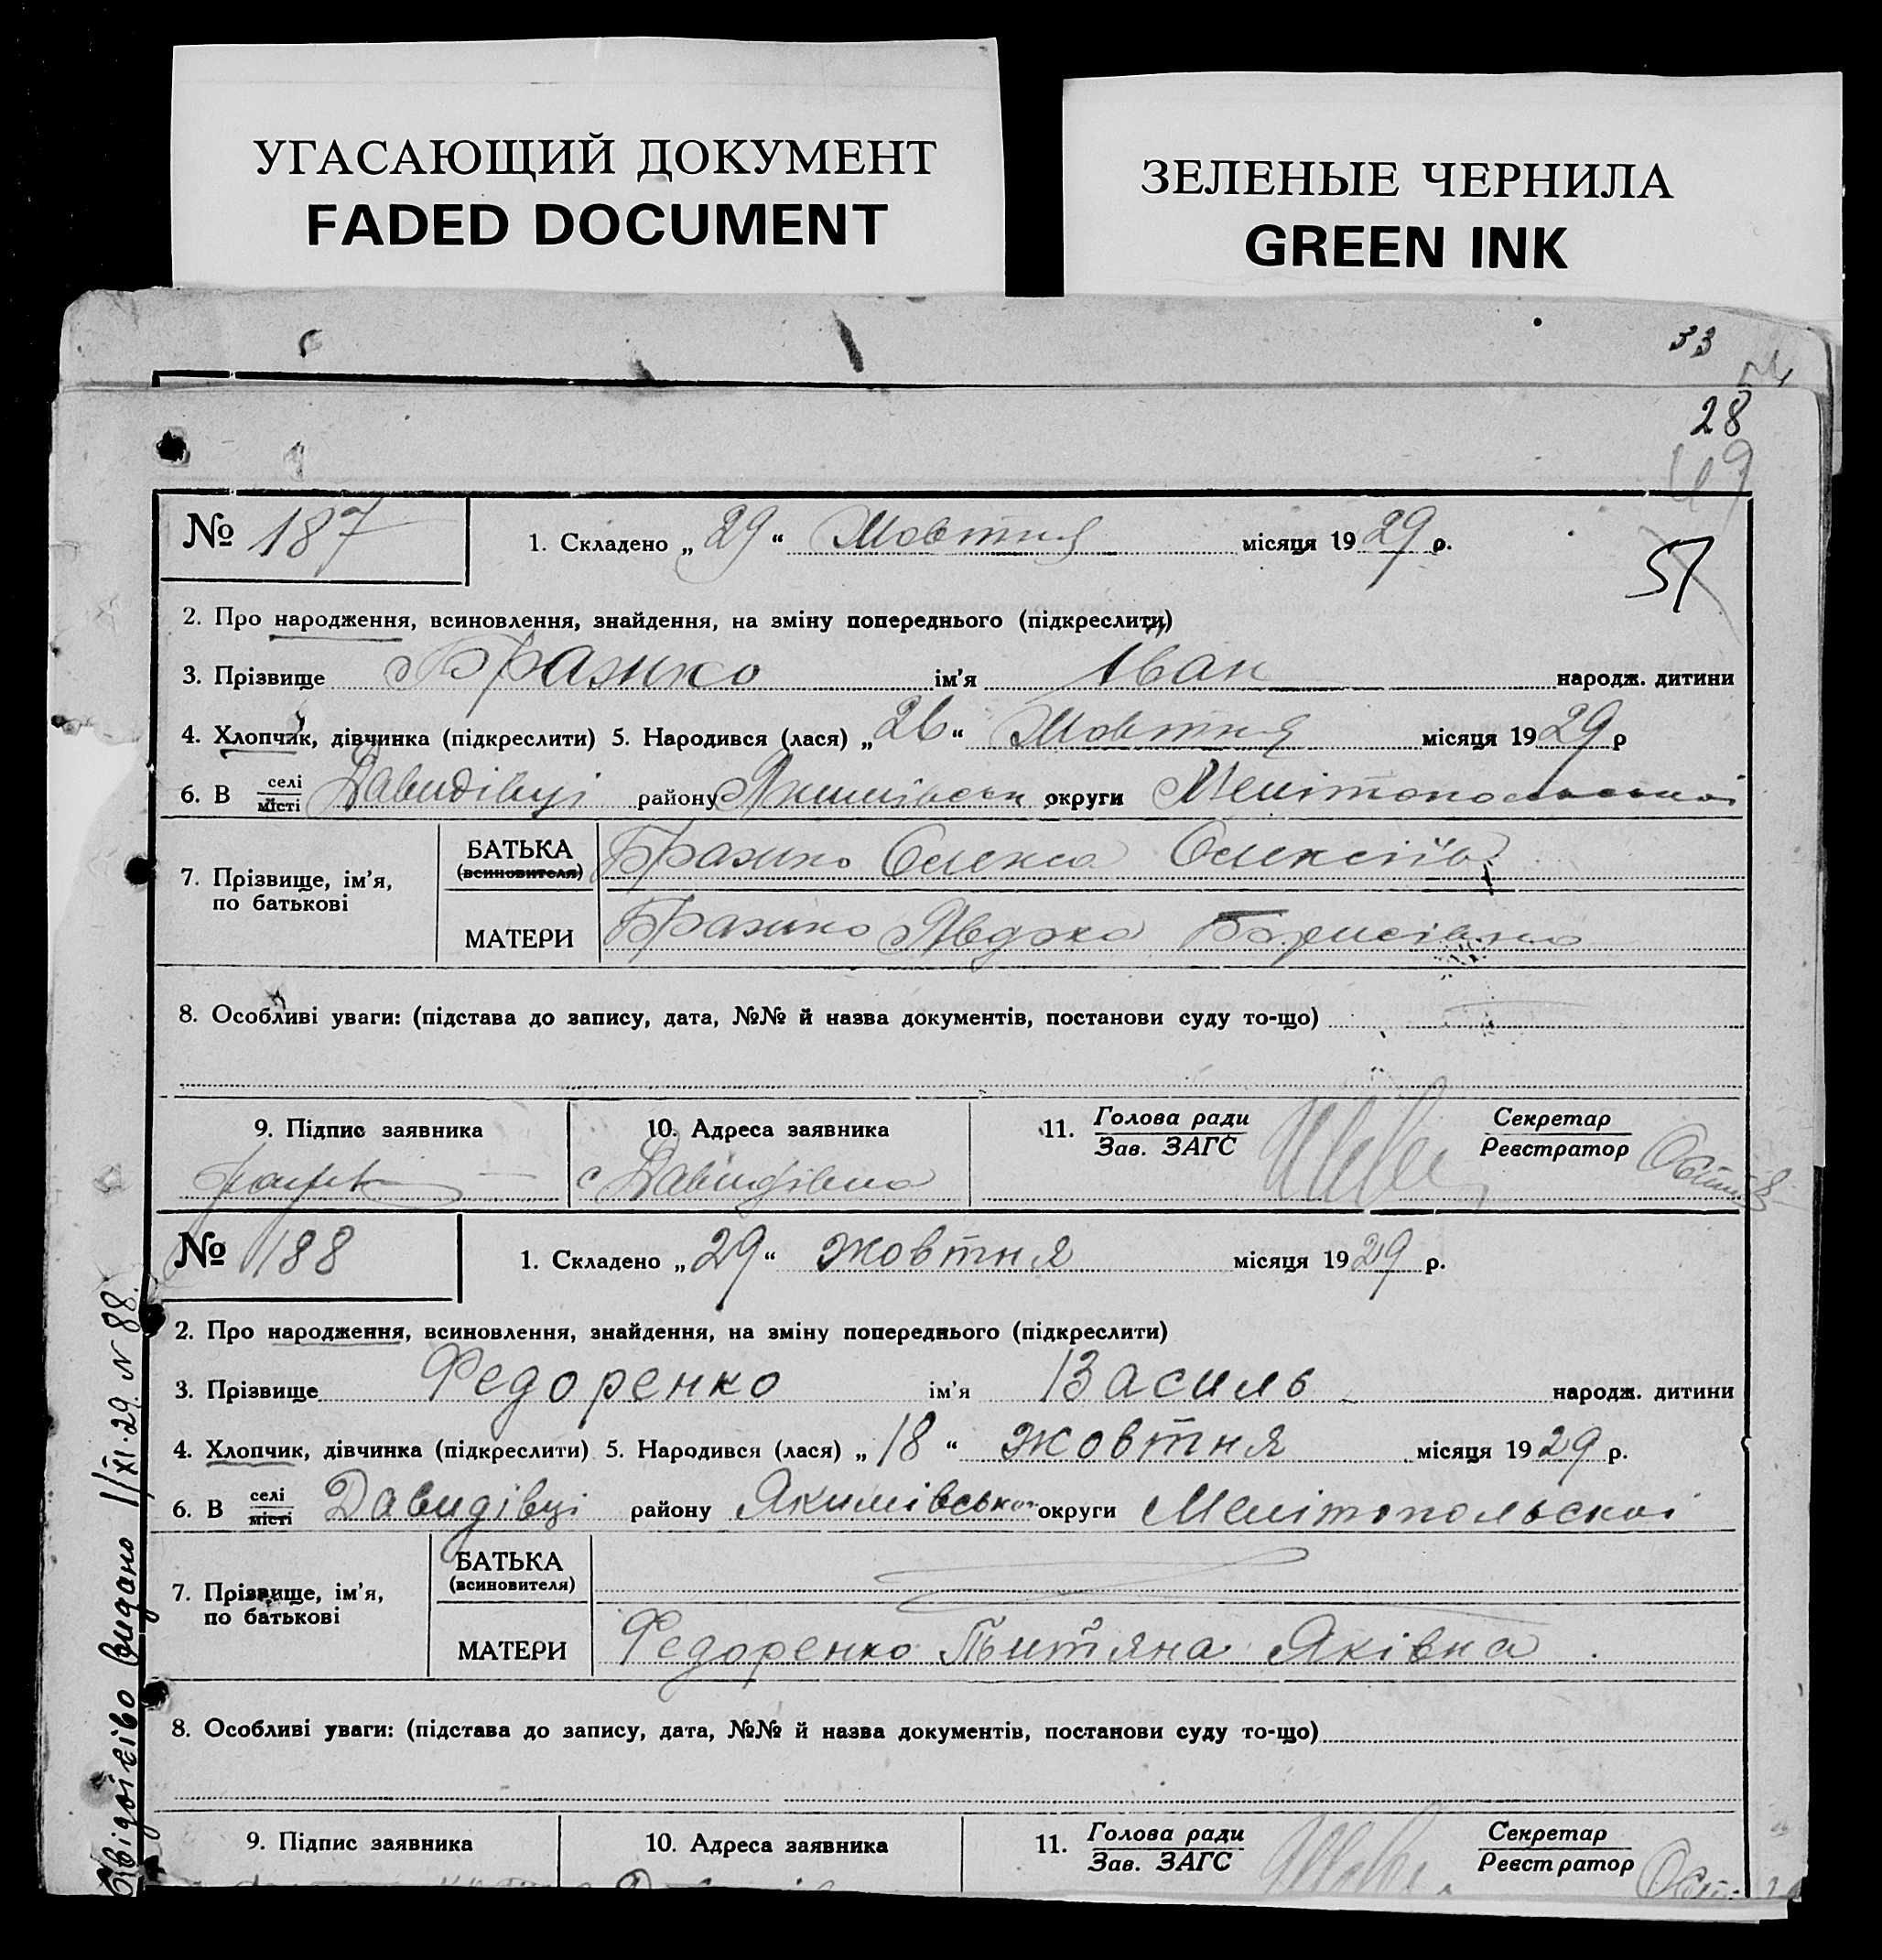 УГАСАЮЩИЙ ДОКУМЕНТ
FADED DOCUMENT
ЗЕЛЕНЫЕ ЧЕРНИЛА
GREEN INK
33
28
49
51
№ 187
1. Складено „29“ Жовтня місяця 1929 р.
2. Про народження, всиновлення, знайдення, на зміну попереднього (підкреслити)
3. Прізвище Бражко ім’я Іван народж. дитини
4. Хлопчик, дівчинка (підкреслити) 5. Народився (лася) „26“ Жовтня місяця 1929 р
6. В селі місті Давидівці району Якимівськ округи Мелітопольської
7. Прізвище, ім’я, по батькові
БАТЬКА (всиновителя) Бражко Олекса Олексіїв
МАТЕРИ Бражко Явдоха Борисівна
8. Особливі уваги: (підстава до запису, дата, №№ й назва документів, постанови суду то-що)
9. Підпис заявника
10. Адреса заявника
с Давидівка
11. Голова ради Зав. ЗАГС
Секретар Реєстратор
№ 188
1. Складено „29“ жовтня місяця 1929 р.
2. Про народження, всиновлення, знайдення, на зміну попереднього (підкреслити)
3. Прізвище Федоренко ім’я Василь народж. дитини
4. Хлопчик, дівчинка (підкреслити) 5. Народився (лася) „18“ жовтня місяця 1929 р.
6. В селі місті Давидівці району Якимівсько округи Мелітопольскої
7. Прізвище, ім’я, по батькові
БАТЬКА (всиновителя)
МАТЕРИ Федоренко Тытяна Яківна
8. Особливі уваги: (підстава до запису, дата, №№ й назва документів, постанови суду то-що)
9. Підпис заявника
10. Адреса заявника
11. Голова ради Зав. ЗАГС
Секретар Реєстратор
видано 11/XI-29. N 88.